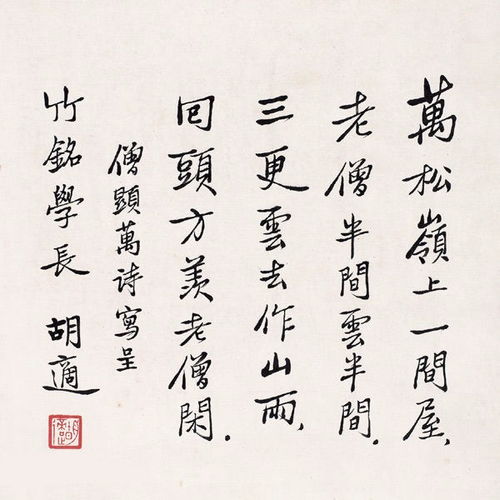 萬松嶺上一間屋、
老僧半間雲半間.
三更雲去作山雨、
回頭方羨老僧閑.
僧顯萬詩寫呈
竹銘學長 胡適